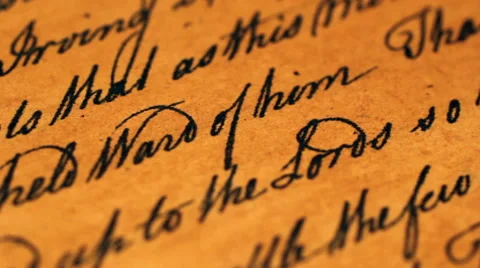 Irving
ls that as this
held Ward of him Tha
up to the Lords so
the few